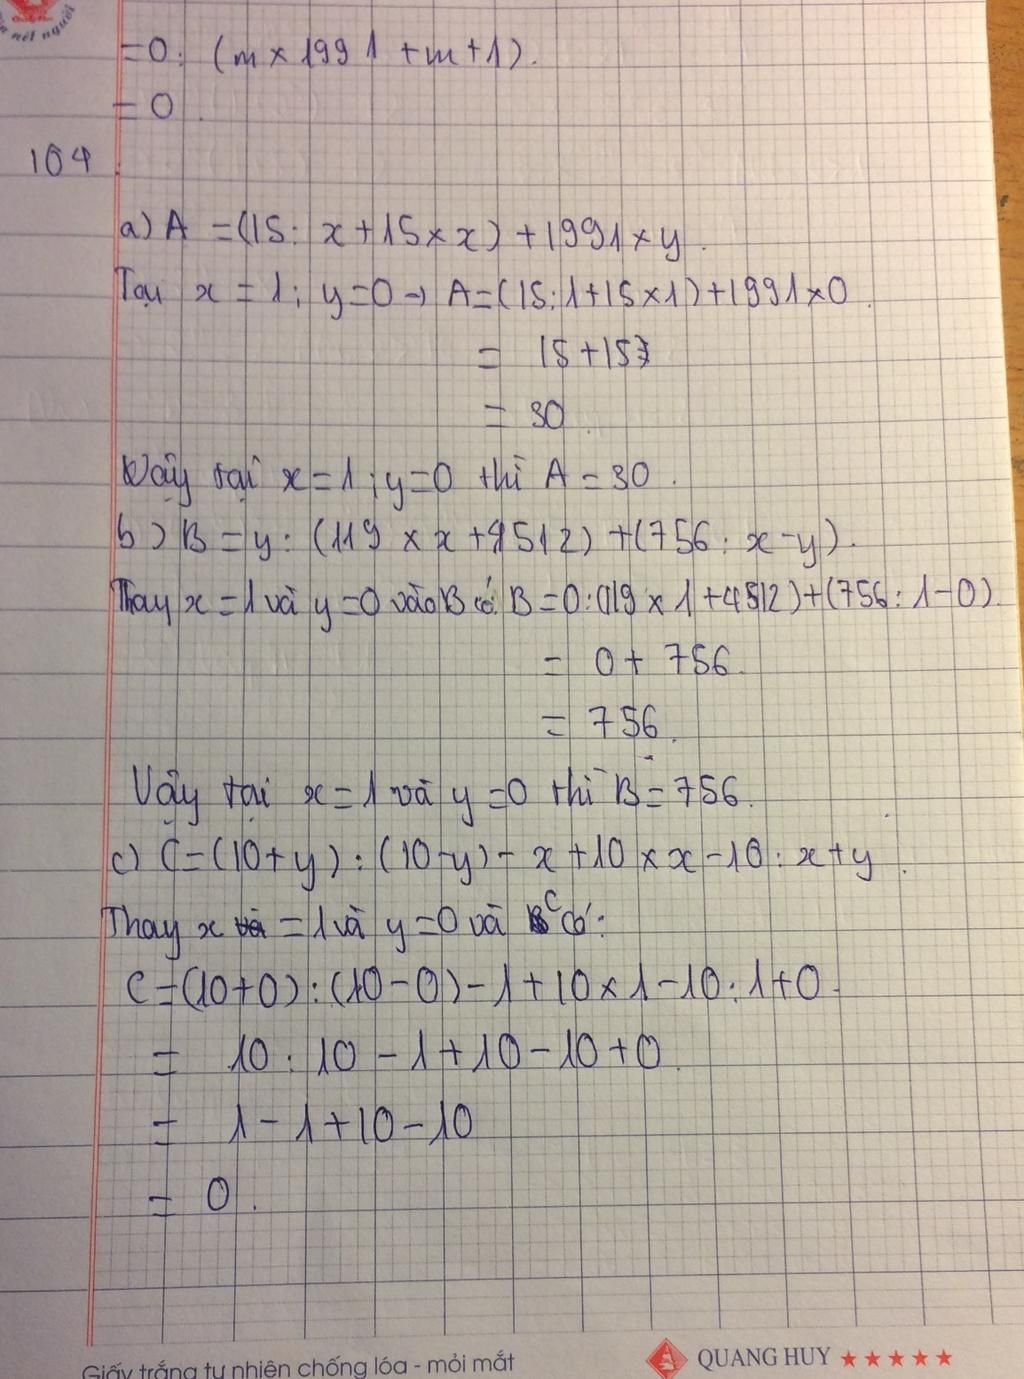 nết người
=0: (m × 1991 + m + 1).
= 0.
104.
a) A = (15: x + 15 × x) + 1991 × y.
Tại x = 1; y = 0 → A = (15:1 + 15 × 1) + 1991 × 0.
= 15 + 15
= 30.
Vậy tại x = 1; y = 0 thì A = 30.
b) B = y: (119 × x + 4512) + (756 : x - y).
Thay x = 1 và y = 0 vào B có: B = 0:(119 × 1 + 4512) + (756 : 1 - 0).
= 0 + 756.
= 756.
Vậy tại x = 1 và y = 0 thì B = 756.
c) C = (10 + y) : (10 - y) - x + 10 × x - 10 : x + y.
Thay x = 1 và y = 0 và C có:
C = (10 + 0) : (10 - 0) - 1 + 10 × 1 - 10 : 1 + 0.
= 10 : 10 - 1 + 10 - 10 + 0.
= 1 - 1 + 10 - 10
= 0.
Giấy trắng tự nhiên chống lóa - mỏi mắt QUANG HUY ★★★★★